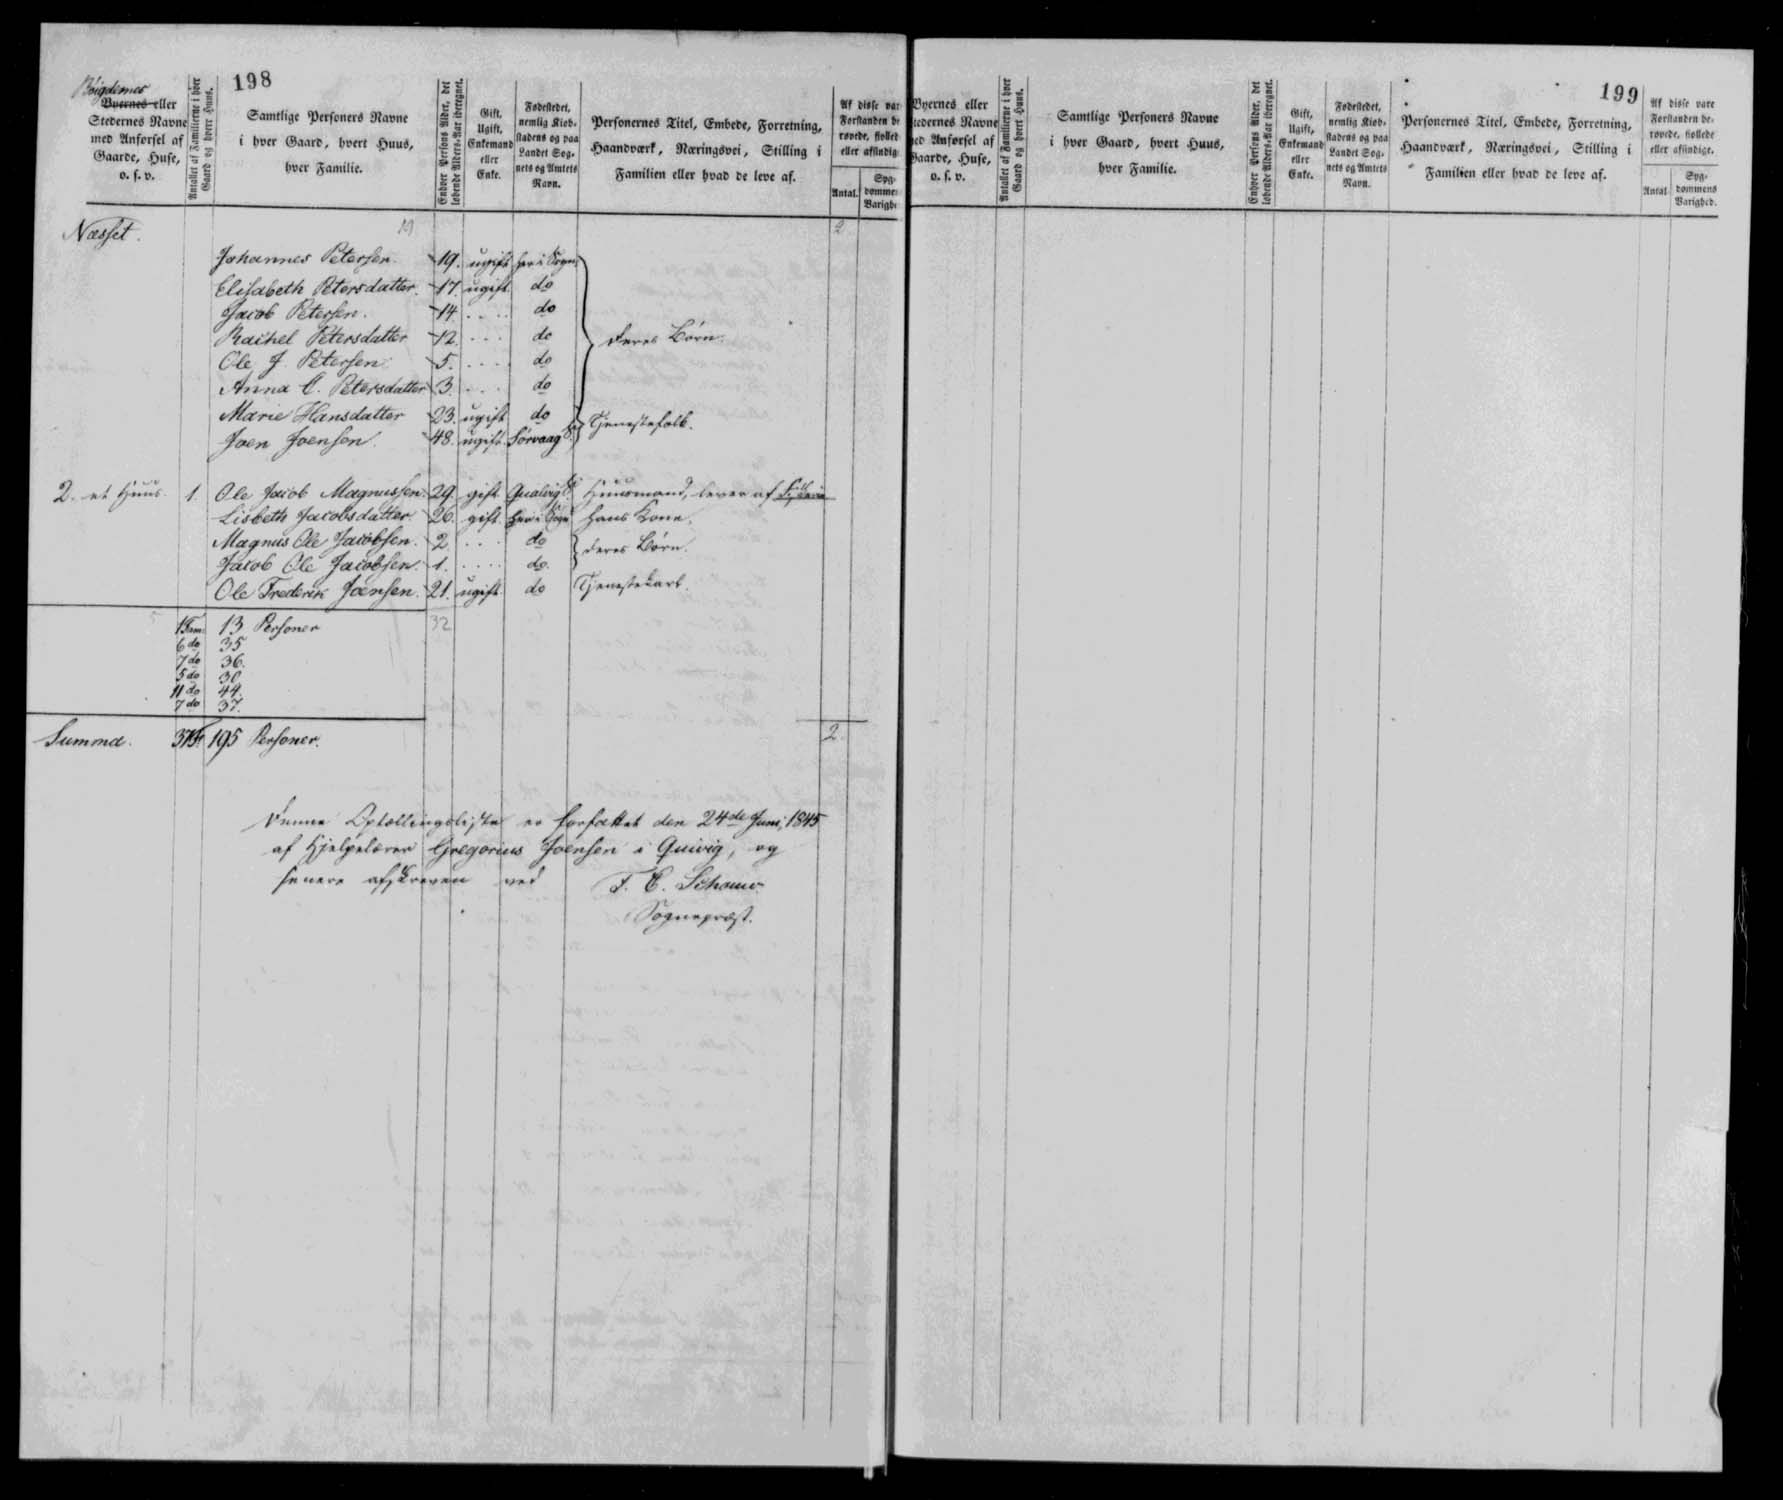 198
Bøigdernes
Byernes eller
Stedernes Navne
med Anførsel af
Gaarde, Huse,
o. s. v.
Antallet af Familierne i hver
Gaard og hvert Huus.
Samtlige Personers Navne
i hver Gaard, hvert Huus,
hver Familie.
Enhver Persons Alder, det
løbende Alders-Aar iberegnet.
Gift,
Ugift,
Enkemand
eller
Enke.
Fødestedet,
nemlig Kiøb-
stadens og paa
Landet Sog-
nets og Amtets
Navn.
Personernes Titel, Embede, Forretning,
Haandværk, Næringsvei, Stilling i
Familien eller hvad de leve af.
Af disse var
Forstanden be
røvede, fiollet
eller afsindig
Antal.
Syg-
domme
Varighe
Næsset.
19
2
Johannes Petersen. 19. ugift her i Sogn
Elisabeth Petersdatter. 17. ugift. do
Jacob Petersen. 14. . . . . do
Rachel Petersdatter 12. . . . do
deres Børn.
Ole J. Petersen. 5. . . . . do
Anna C. Petersdatter 3. . . . do
Marie Hansdatter 23. ugift do
Tjenestefolk.
Joen Joensen. 48. ugift. Sørvaag
2. et Huus. 1. Ole Jacob Magnussen. 29. gift Qualvig Huusmand, lever af
Lisbeth Jacobsdatter. 26. gift. her i Sogn hans Kone.
Magnus Ole Jacobsen. 2. . . . do
deres Børn.
Jacob Ole Jacobsen. 1. . . . . do.
Ole Frederik Joensen. 21. ugift. do Tjenestekarl.
1 Fam: 13 Personer 32
6 do 35
7 do 36.
5 do 30
11 do 44.
7 do 37.
Summa. 37 F. 195 Personer. 2.
Denne Optællingsliste er forfattet den 24de Juni, 1845
af Hjelpelærer Gregorius Joensen i Quivig, og
senere afskreven ved F. C.
Sognepræst.
199
Byernes eller
tedernes Navne
ed Anførsel af
Gaarde, Huse,
o. s. v.
Antallet af Familierne i hver
Gaard og hvert Huus.
Samtlige Personers Navne
i hver Gaard, hvert Huus,
hver Familie.
Enhver Persons Alder, det
løbende Alders-Aar iberegnet.
Gift,
Ugift,
Enkemand
eller
Enke.
Fødestedet,
nemlig Kiøb-
stadens og paa
Landet Sog-
nets og Amtets
Navn.
Personernes Titel, Embede, Forretning,
Haandværk, Næringsvei, Stilling i
Familien eller hvad de leve af.
Af disse vare
Forstanden be-
røvede, fiollede
eller afsindige.
Antal
Syg-
dommens
Varighed.